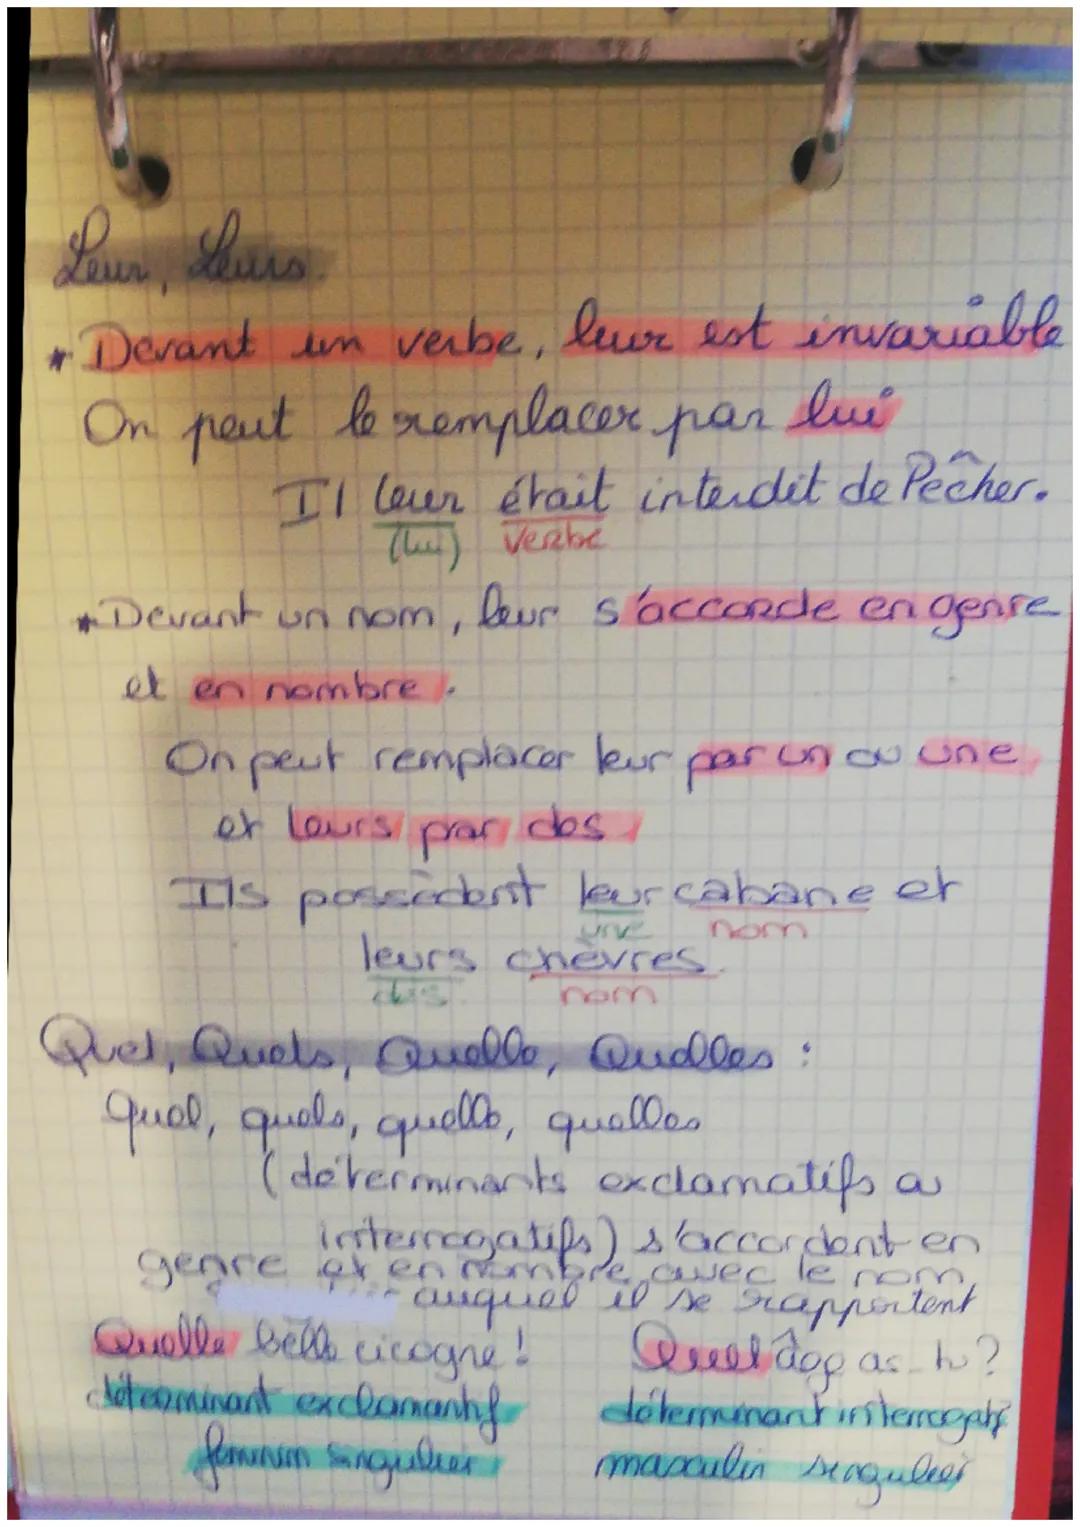 Leur, Leurs.
* Devant un verbe, leur est invariable
On peut le remplacer par lui
Il leur était interdit de Pêcher.
(lui) verbe
* Devant un nom, leur s'accorde en genre
et en nombre.
On peut remplacer leur par un ou une
et leurs par des
Ils possèdent leur cabane et
une nom
leurs chèvres.
des nom
Quel, Quels, Quelle, Quelles :
quel, quels, quelle, quelles
(déterminants exclamatifs ou
interrogatifs) s'accordent en
genre et en nombre avec le nom,
auquel il se rapportent
Quelle belle cicogne! Quel âge as-tu?
déterminant exclamantif déterminant interrogatif
féminin singulier masculin singulier